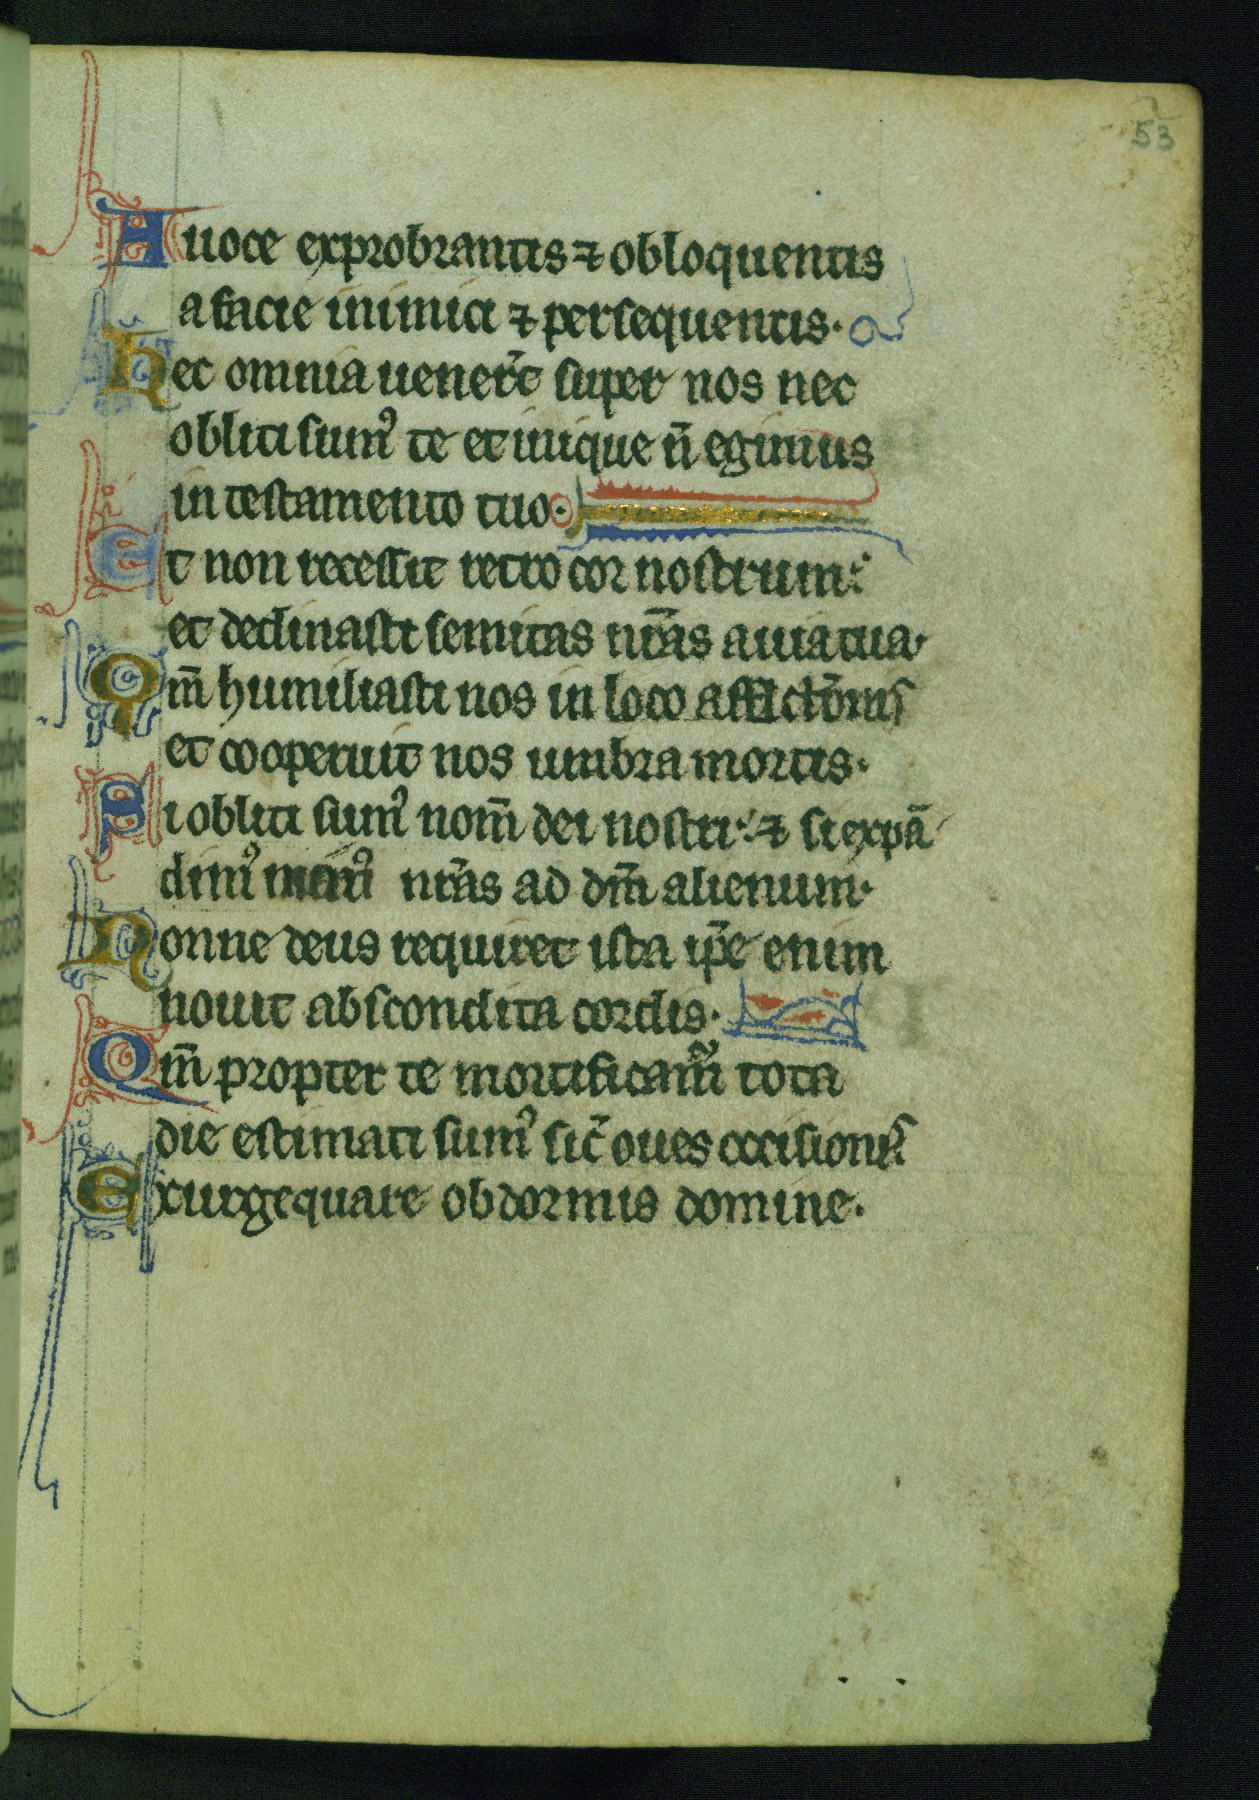 53
A uoce exprobrantis ⁊ obloquentis
a facie inimici ⁊ persequentis·
Hec omnia uener̄t super nos nec
obliti sumꝰ te et inique n̄ egimus
in testamento tuo·
Et non recessit retro cor nostrum:
et declinasti semitas nr̄as a uia tua·
Qm̄ humiliasti nos in loco afflictōnis
et cooperuit nos umbra mortis·
Si obliti sumꝰ nom̄ dei nostri: ⁊ si expā
dimꝰ nr̄as ad dm̄ alienum·
Nonne deus requiret ista ip̄e enim
nouit abscondita cordis·
Qm̄ propter te mortificam̄ tota
die estimati sumꝰ sic̄ oues occisionis
Exurge quare obdormis domine·